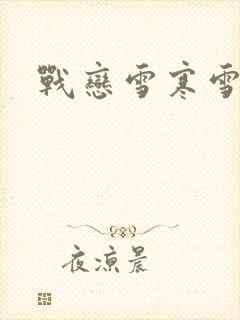 戰戀雪寒雪
夜涼晨